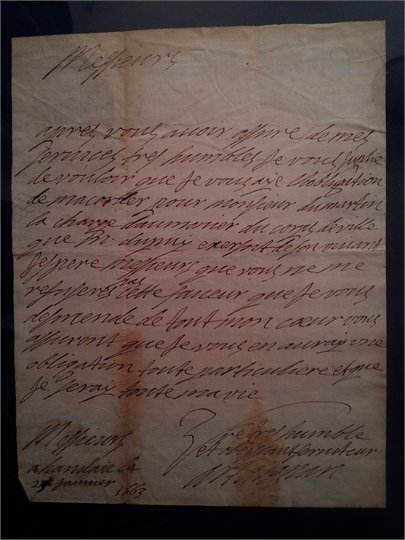 Messieurs
apres vous avoir assure de mes
services tres humbles Je vous suplie
de vouloir que Je vous aye lobligation
de macorder pour monsieur dumarton
la charge daumonier du corps de ville
que Mr dupuy exersoit de son vivant
Jespere messieurs que vous ne me
refuseres pas cette faveur que Je vous
demende de tout mon cœur vous
assurent que Je vous en auray une
obligation toute particuliere et que
Je seray toute ma vie
Messieurs
Vre tres humble
et obeissant serviteur
Artaignan
a landaie ce
25 janvier
1663